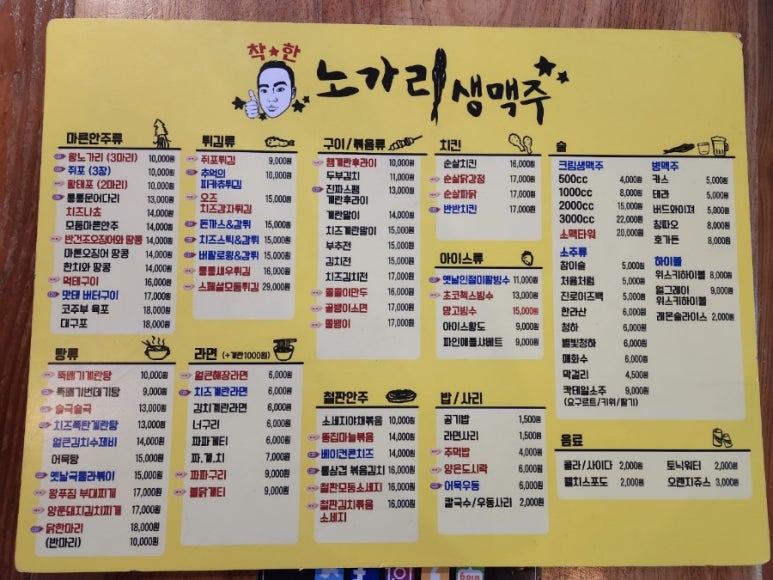 착★한
노가리
생맥주
마른안주류
왕노가리 (3마리) 10,000원
쥐포 (3장) 10,000원
황태포 (2마리) 10,000원
통통문어다리 13,000원
치즈나쵸 14,000원
모듬마른안주 14,000원
반건조오징어와 땅콩 14,000원
마른오징어 땅콩 14,000원
한치와 땅콩 14,000원
먹태구이 16,000원
맛태 버터구이 17,000원
코주부 육포 18,000원
대구포 18,000원
튀김류
쥐포튀김 9,000원
추억의
피카츄튀김 10,000원
오즈
치즈감자튀김 15,000원
돈까스&감튀 15,000원
치즈스틱&감튀 15,000원
버팔로윙&감튀 15,000원
통통새우튀김 16,000원
스페셜모둠튀김 29,000원
구이/볶음류
햄계란후라이 10,000원
두부김치 11,000원
진짜스팸
계란후라이 13,000원
계란말이 14,000원
치즈계란말이 15,000원
부추전 15,000원
김치전 15,000원
치즈김치전 17,000원
쫄쫄이만두 16,000원
골뱅이소면 17,000원
쫄뱅이 17,000원
치킨
순살치킨 16,000원
순살닭강정 17,000원
순살파닭 17,000원
반반치킨 17,000원
아이스류
옛날인절미팥빙수 11,000원
초코첵스빙수 13,000원
망고빙수 15,000원
아이스황도 9,000원
파인애플샤베트 9,000원
술
크림생맥주
500cc 4,000원
1000cc 8,000원
2000cc 15,000원
3000cc 22,000원
소맥타워 20,000원
소주류
참이슬 5,000원
처음처럼 5,000원
진로이즈백 5,000원
한라산 6,000원
청하 6,000원
별빛청하 6,000원
매화수 6,000원
막걸리 4,500원
칵테일소주 9,000원
(요구르트/키위/딸기)
병맥주
카스 5,000원
테라 5,000원
버드와이져 5,000원
칭따오 8,000원
호가든 8,000원
하이볼
위스키하이볼 8,000원
얼그레이
위스키하이볼 9,000원
레몬슬라이스 2,000원
탕류
뚝배기계란탕 10,000원
뚝배기번데기탕 9,000원
술국술국 13,000원
치즈폭탄계란탕 13,000원
얼큰김치수제비 14,000원
어묵탕 15,000원
옛날국물라볶이 15,000원
왕푸짐 부대찌개 17,000원
양푼돼지김치찌개 17,000원
닭한마리 18,000원
(반마리) 10,000원
라면 (+계란1000원)
얼큰해장라면 6,000원
치즈계란라면 6,000원
김치계란라면 6,000원
너구리 6,000원
짜파게티 6,000원
파.계.치 7,000원
짜파구리 9,000원
불닭게티 9,000원
철판안주
소세지야채볶음 10,000원
똥집마늘볶음 14,000원
베이컨콘치즈 14,000원
통삼겹 볶음김치 16,000원
철판모둠소세지 16,000원
철판김치볶음
소세지 16,000원
밥/사리
공기밥 1,500원
라면사리 1,500원
주먹밥 4,000원
양은도시락 6,000원
어묵우동 6,000원
칼국수/우동사리 2,000원
음료
콜라/사이다 2,000원
토닉워터 2,000원
웰치스포도 2,000원
오렌지쥬스 3,000원